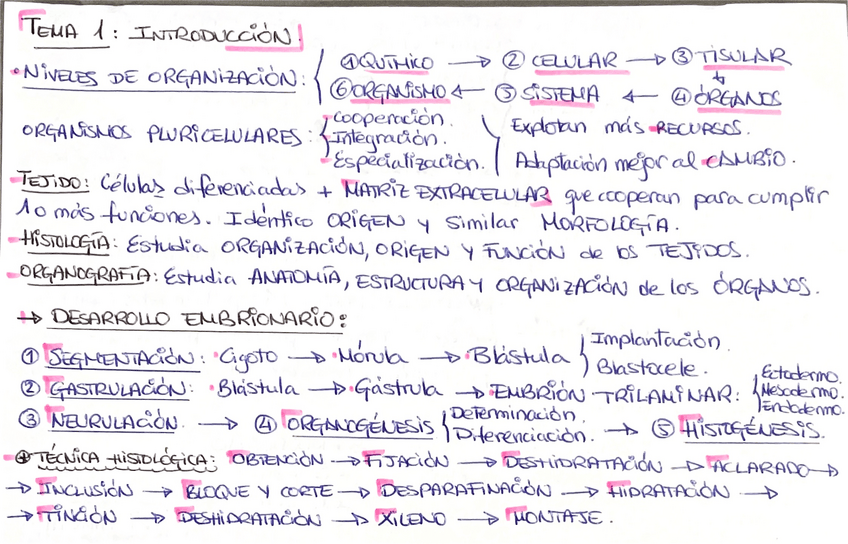 TEMA 1: INTRODUCCIÓN.
• NIVELES DE ORGANIZACIÓN: { ① QUÍMICO → ② CELULAR → ③ TISULAR
↓
⑥ ORGANISMO ← ⑤ SISTEMA ← ④ ÓRGANOS
ORGANISMOS PLURICELULARES: { Cooperación. Integración. Especialización. { Explotan más RECURSOS. Adaptación mejor al CAMBIO.
- TEJIDO: Células diferenciadas + MATRIZ EXTRACELULAR que cooperan para cumplir
1 o más funciones. Idéntico ORIGEN y similar MORFOLOGÍA.
- HISTOLOGÍA: Estudia ORGANIZACIÓN, ORIGEN Y FUNCIÓN de los TEJIDOS.
- ORGANOGRAFÍA: Estudia ANATOMÍA, ESTRUCTURA Y ORGANIZACIÓN de los ÓRGANOS.
→ DESARROLLO EMBRIONARIO:
① SEGMENTACIÓN: • Cigoto → • Mórula → • Blástula { Implantación. Blastocele.
② GASTRULACIÓN: • Blástula → • Gástrula → EMBRIÓN TRILAMINAR: { Ectodermo. Mesodermo. Endodermo.
③ NEURULACIÓN. → ④ ORGANOGÉNESIS { Determinación. Diferenciación. → ⑤ HISTOGÉNESIS.
- ④ TÉCNICA HISTOLÓGICA: OBTENCIÓN → FIJACIÓN → DESHIDRATACIÓN → ACLARADO →
→ INCLUSIÓN → BLOQUE Y CORTE → DESPARAFINACIÓN → HIDRATACIÓN →
→ TINCIÓN → DESHIDRATACIÓN → XILENO → MONTAJE.